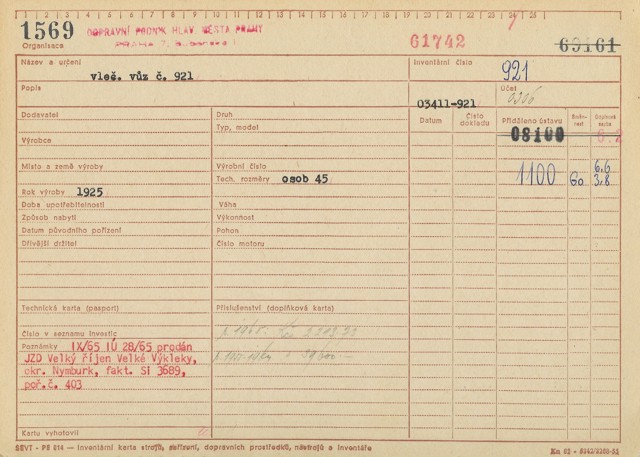 1 2 3 4 5 6 7 8 9 10 11 12 13 14 15 16 17 18 19 20 21 22 23 24 25
1569 DOPRAVNÍ PODNIK HLAV. MĚSTA PRAHY
Organisace
61742
69161
Název a určení
vleč. vůz č. 921
Inventární číslo
921
Popis
Účet
03411-921
Dodavatel
Druh
Datum
Číslo dokladu
Přiděleno ústavu
Směnnost
Typ, model
08100
6.2
Výrobce
Místo a země výroby
Výrobní číslo
1100
60
6.6
3.8
Tech. rozměry osob 45
Rok výroby 1925
Doba upotřebitelnosti
Váha
Způsob nabytí
Výkonnost
Datum původního pořízení
Pohon
Dřívější držitel
Číslo motoru
Technická karta (pasport)
Příslušenství (doplňková karta)
Číslo v seznamu investic
Poznámky IX/65 IÚ 28/65 prodán
JZD Velký říjen Velké Výkleky,
okr. Nymburk, fakt. Si 3689,
poř.č. 403
Kartu vyhotovil
SEVT - PE 014 — Inventární karta strojů, zařízení, dopravních prostředků, nástrojů a inventáře